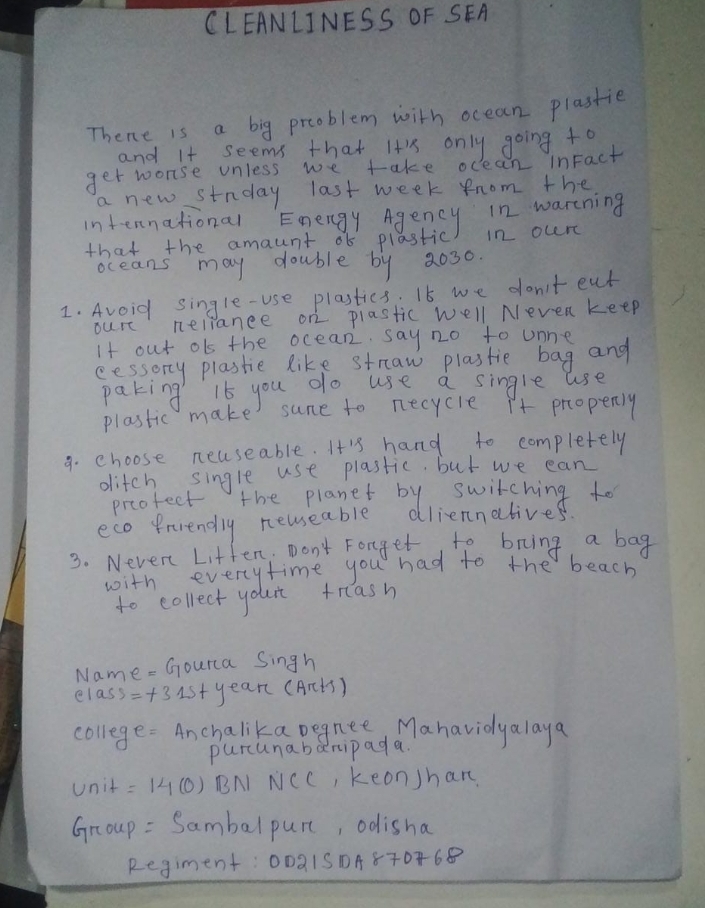 CLEANLINESS OF SEA
There is a big problem with ocean plastic
and it seems that It's only going to
get worse unless we take ocean InFact
a new stnday last week from the
international Energy Agency in warning
that the amaunt of plastic in our
oceans may double by 2030.
1. Avoid single-use plastics. If we don't cut
our reliance on plastic well Never keep
It out of the ocean. say no to unne
cessory plastic like straw plastic bag and
paking If you do use a single use
plastic make sure to recycle It properly
2. choose reuseable. It's hard to completely
ditch single use plastic. but we can
protect the planet by switching to
eco friendly reuseable aliernatives.
3. Never Litter. Don't Forget to bring a bag
with everytime you had to the beach
to collect your trash
Name = Goura Singh
class = +3 1st year (Arts)
college = Anchalika Degree Mahavidyalaya
purunabaripada.
Unit = 14(O) BN NCC, Keonjhar.
Group = Sambalpur, odisha
Regiment : OD21SDA870768